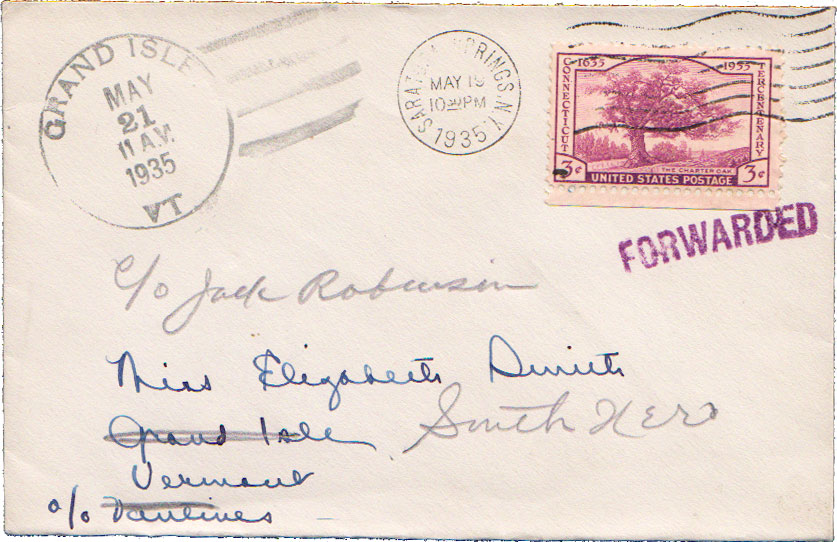 GRAND ISLE
MAY
21
11 A.M.
1935
VT
SARATOGA SPRINGS N.Y.
MAY 19
10 30 PM
1935
1635 1935
CONNECTICUT
TERCENTENARY
THE CHARTER OAK
3¢ 3¢
UNITED STATES POSTAGE
FORWARDED
c/o Jack Robinson
Miss Elizabeth
Grand Isle
South Hero
Vermont
c/o